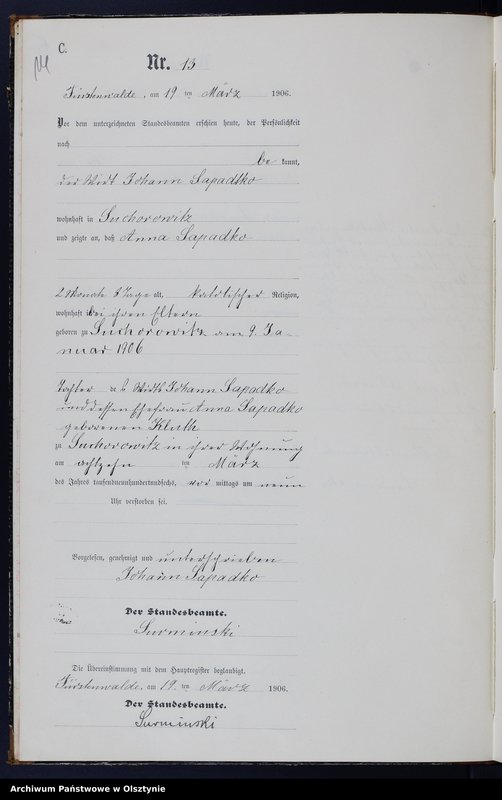 C.
Nr. 13
Fürstenwalde, am 19 ten März 1906.
Vor dem unterzeichneten Standesbeamten erschien heute, der Persönlichkeit
nach
be kannt,
der Wirt Johann Sapadtko
wohnhaft in Suchorowitz
und zeigte an, daß Anna Sapadko
2 Monate 8 Tage alt, katolischer Religion,
wohnhaft bei ihren Eltern
geboren zu Suchorowitz am 9. Ja-
nuar 1906
Tochter des Wirts Johann Sapadko
und dessen Ehefrau Anna Sapadko
geborenen Kluth
zu Suchorowitz in ihrer Wohnung
am achtzehn ten März
des Jahres tausendneunhundertundsechs, vor mittags um neun
Uhr verstorben sei.
Vorgelesen, genehmigt und unterschrieben
Johann Sapadko
Der Standesbeamte.
Surminski
Die Übereinstimmung mit dem Hauptregister beglaubigt.
Fürstenwalde, am 19. ten März 1906.
Der Standesbeamte.
Surminski
Archiwum Państwowe w Olsztynie